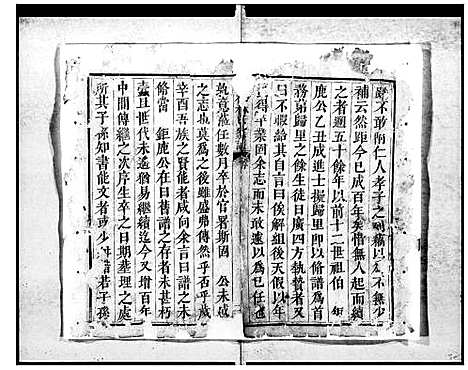 敢附仁人孝子之
補云然距今已成百年矣惜無人起而續
之者週五十餘年以前十二世祖伯 年
鹿公乙丑成進士擬歸里即以脩譜為首
務第歸里之餘生徒日廣四方執贄者又
日不暇給其自言曰俟解組後天或
得卒業囹余志而未敢遽以為已任
竟蒞任數月卒於官署斯固 公未
之志也莫為之後雖盛弗傳然乎否乎歲
辛酉吾族之賢能者咸向余言曰譜之未
脩當 鉅鹿公在日舊譜之存者未甚朽
蠹且世代未遠猶易繼續迄今又增百年
中間傳繼之次序生卒之日期墓理之處
所其子孫知書能文者或少 若子孫